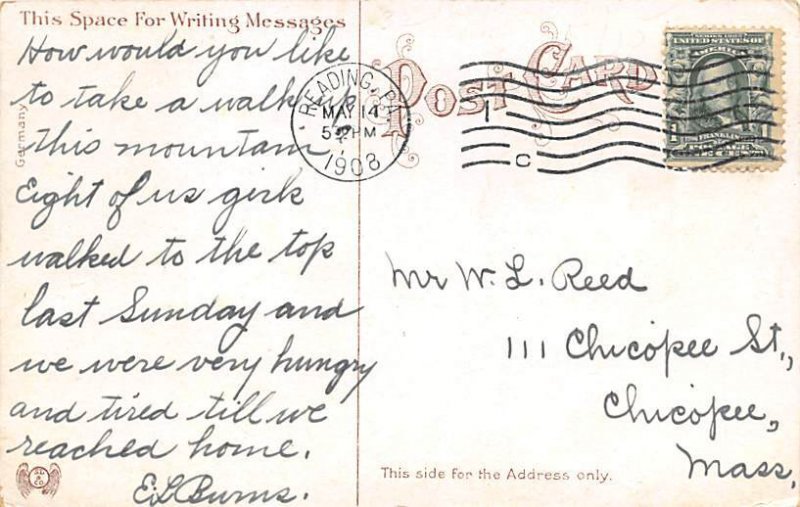 This Space For Writing Messages
How would you like
to take a walk up
this mountain
Eight of us girls
walked to the top
last Sunday and
we were very hungry
and tired till we
reached home.
E.L. Burns.
Germany
POST CARD
READING, PA.
MAY 14
PM
1908
1
C
SERIES 1902
UNITED STATES OF
AMERICA
FRANKLIN
Mr W. L. Reed
111 Chicopee St.,
Chicopee,
Mass.
This side for the Address only.